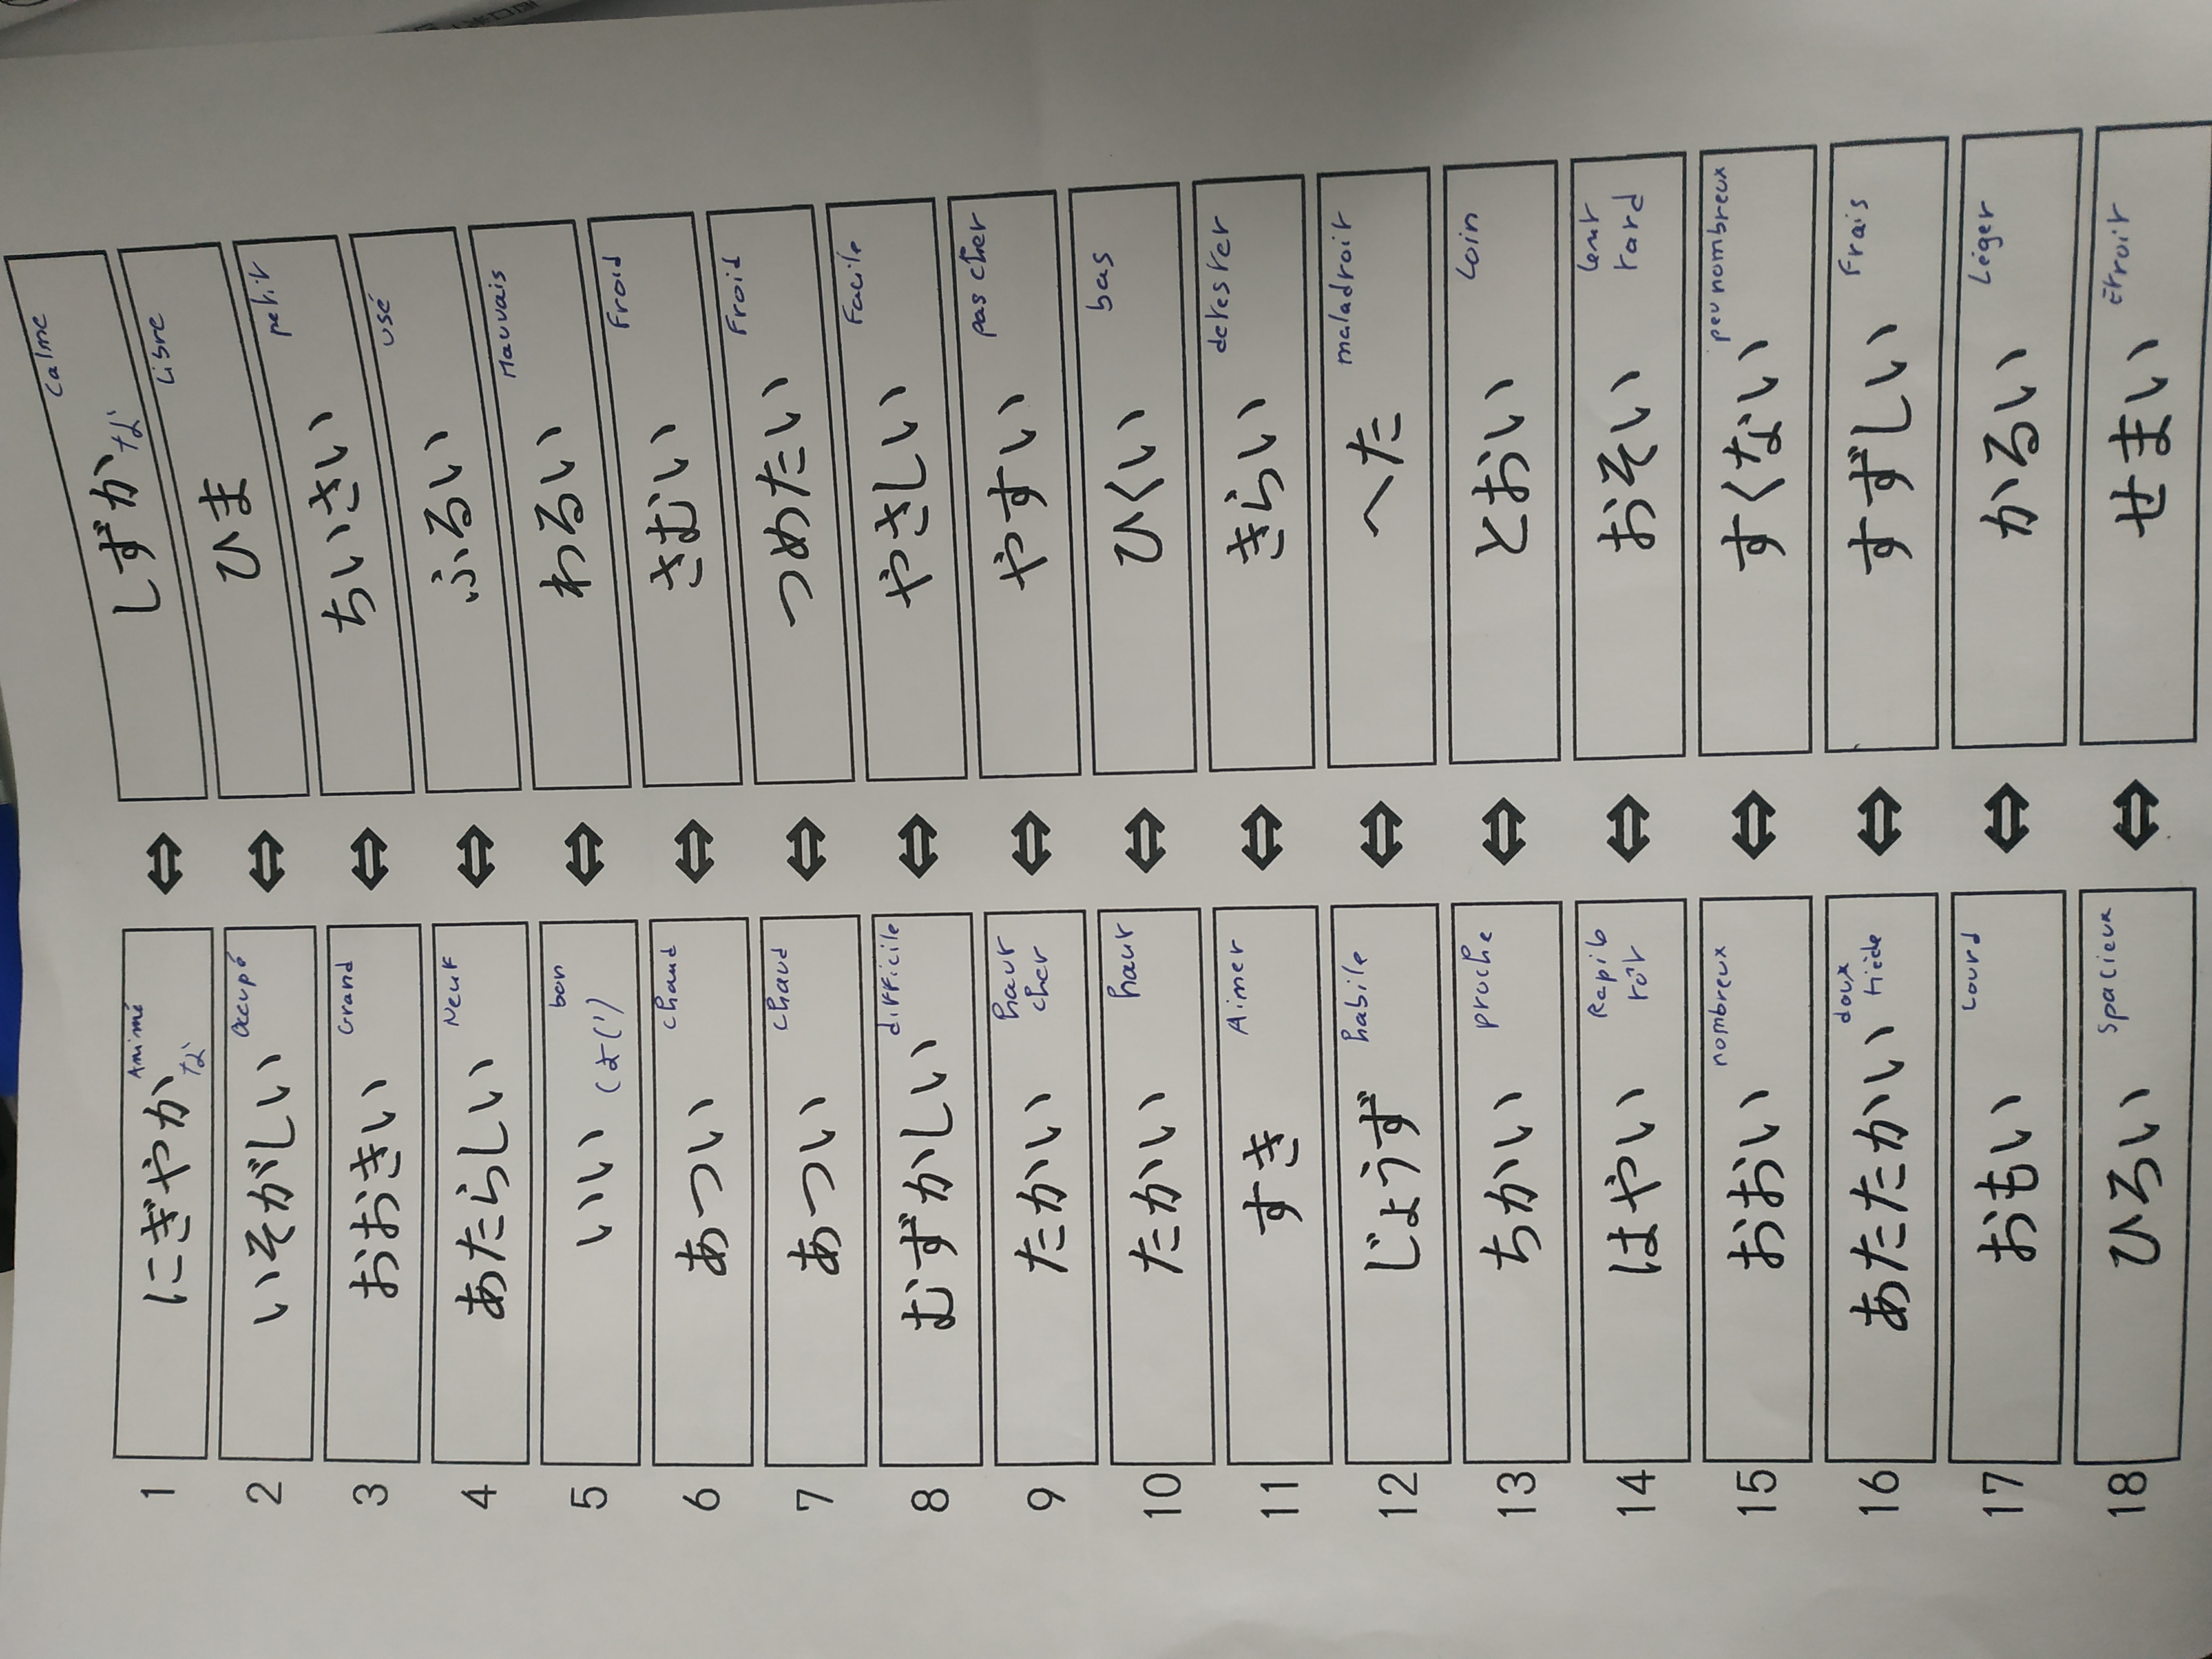 1 にぎやか な Animé ⇔ しずか な Calme
2 いそがしい Occupé ⇔ ひま Libre
3 おおきい Grand ⇔ ちいさい petit
4 あたらしい Neuf ⇔ ふるい usé
5 いい (よい) bon ⇔ わるい Mauvais
6 あつい chaud ⇔ さむい Froid
7 あつい chaud ⇔ つめたい Froid
8 むずかしい difficile ⇔ やさしい Facile
9 たかい haut cher ⇔ やすい pas cher
10 たかい haut ⇔ ひくい bas
11 すき Aimer ⇔ きらい detester
12 じょうず habile ⇔ へた maladroit
13 ちかい proche ⇔ とおい Loin
14 はやい Rapid tôt ⇔ おそい lent tard
15 おおい nombreux ⇔ すくない peu nombreux
16 あたたかい doux tiède ⇔ すずしい Frais
17 おもい Lourd ⇔ かるい Léger
18 ひろい Spacieux ⇔ せまい Étroit